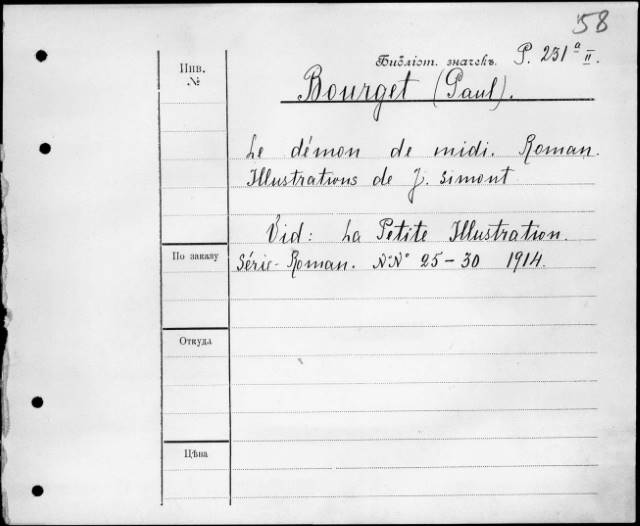 58
Библіот. значекъ. P. 231 a II.
Инв. №
Bourget (Paul).
Le démon de midi. Roman.
Illustrations de J. Simont
Vid: La Petite Illustration.
По заказу
Série-Roman. №№ 25-30 1914.
Откуда
Цѣна